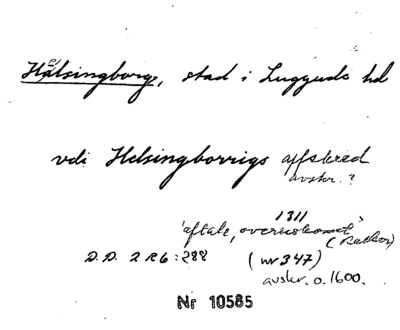 Hälsingborg, stad i Luggude hd
vdi Helsingborrigs affskeed
avskr.?
1311
'aftale, overenskomst'
D.D. 2 R 6: 288 (nr 347) (Kalkar)
avskr. o. 1600.
Nr 10585